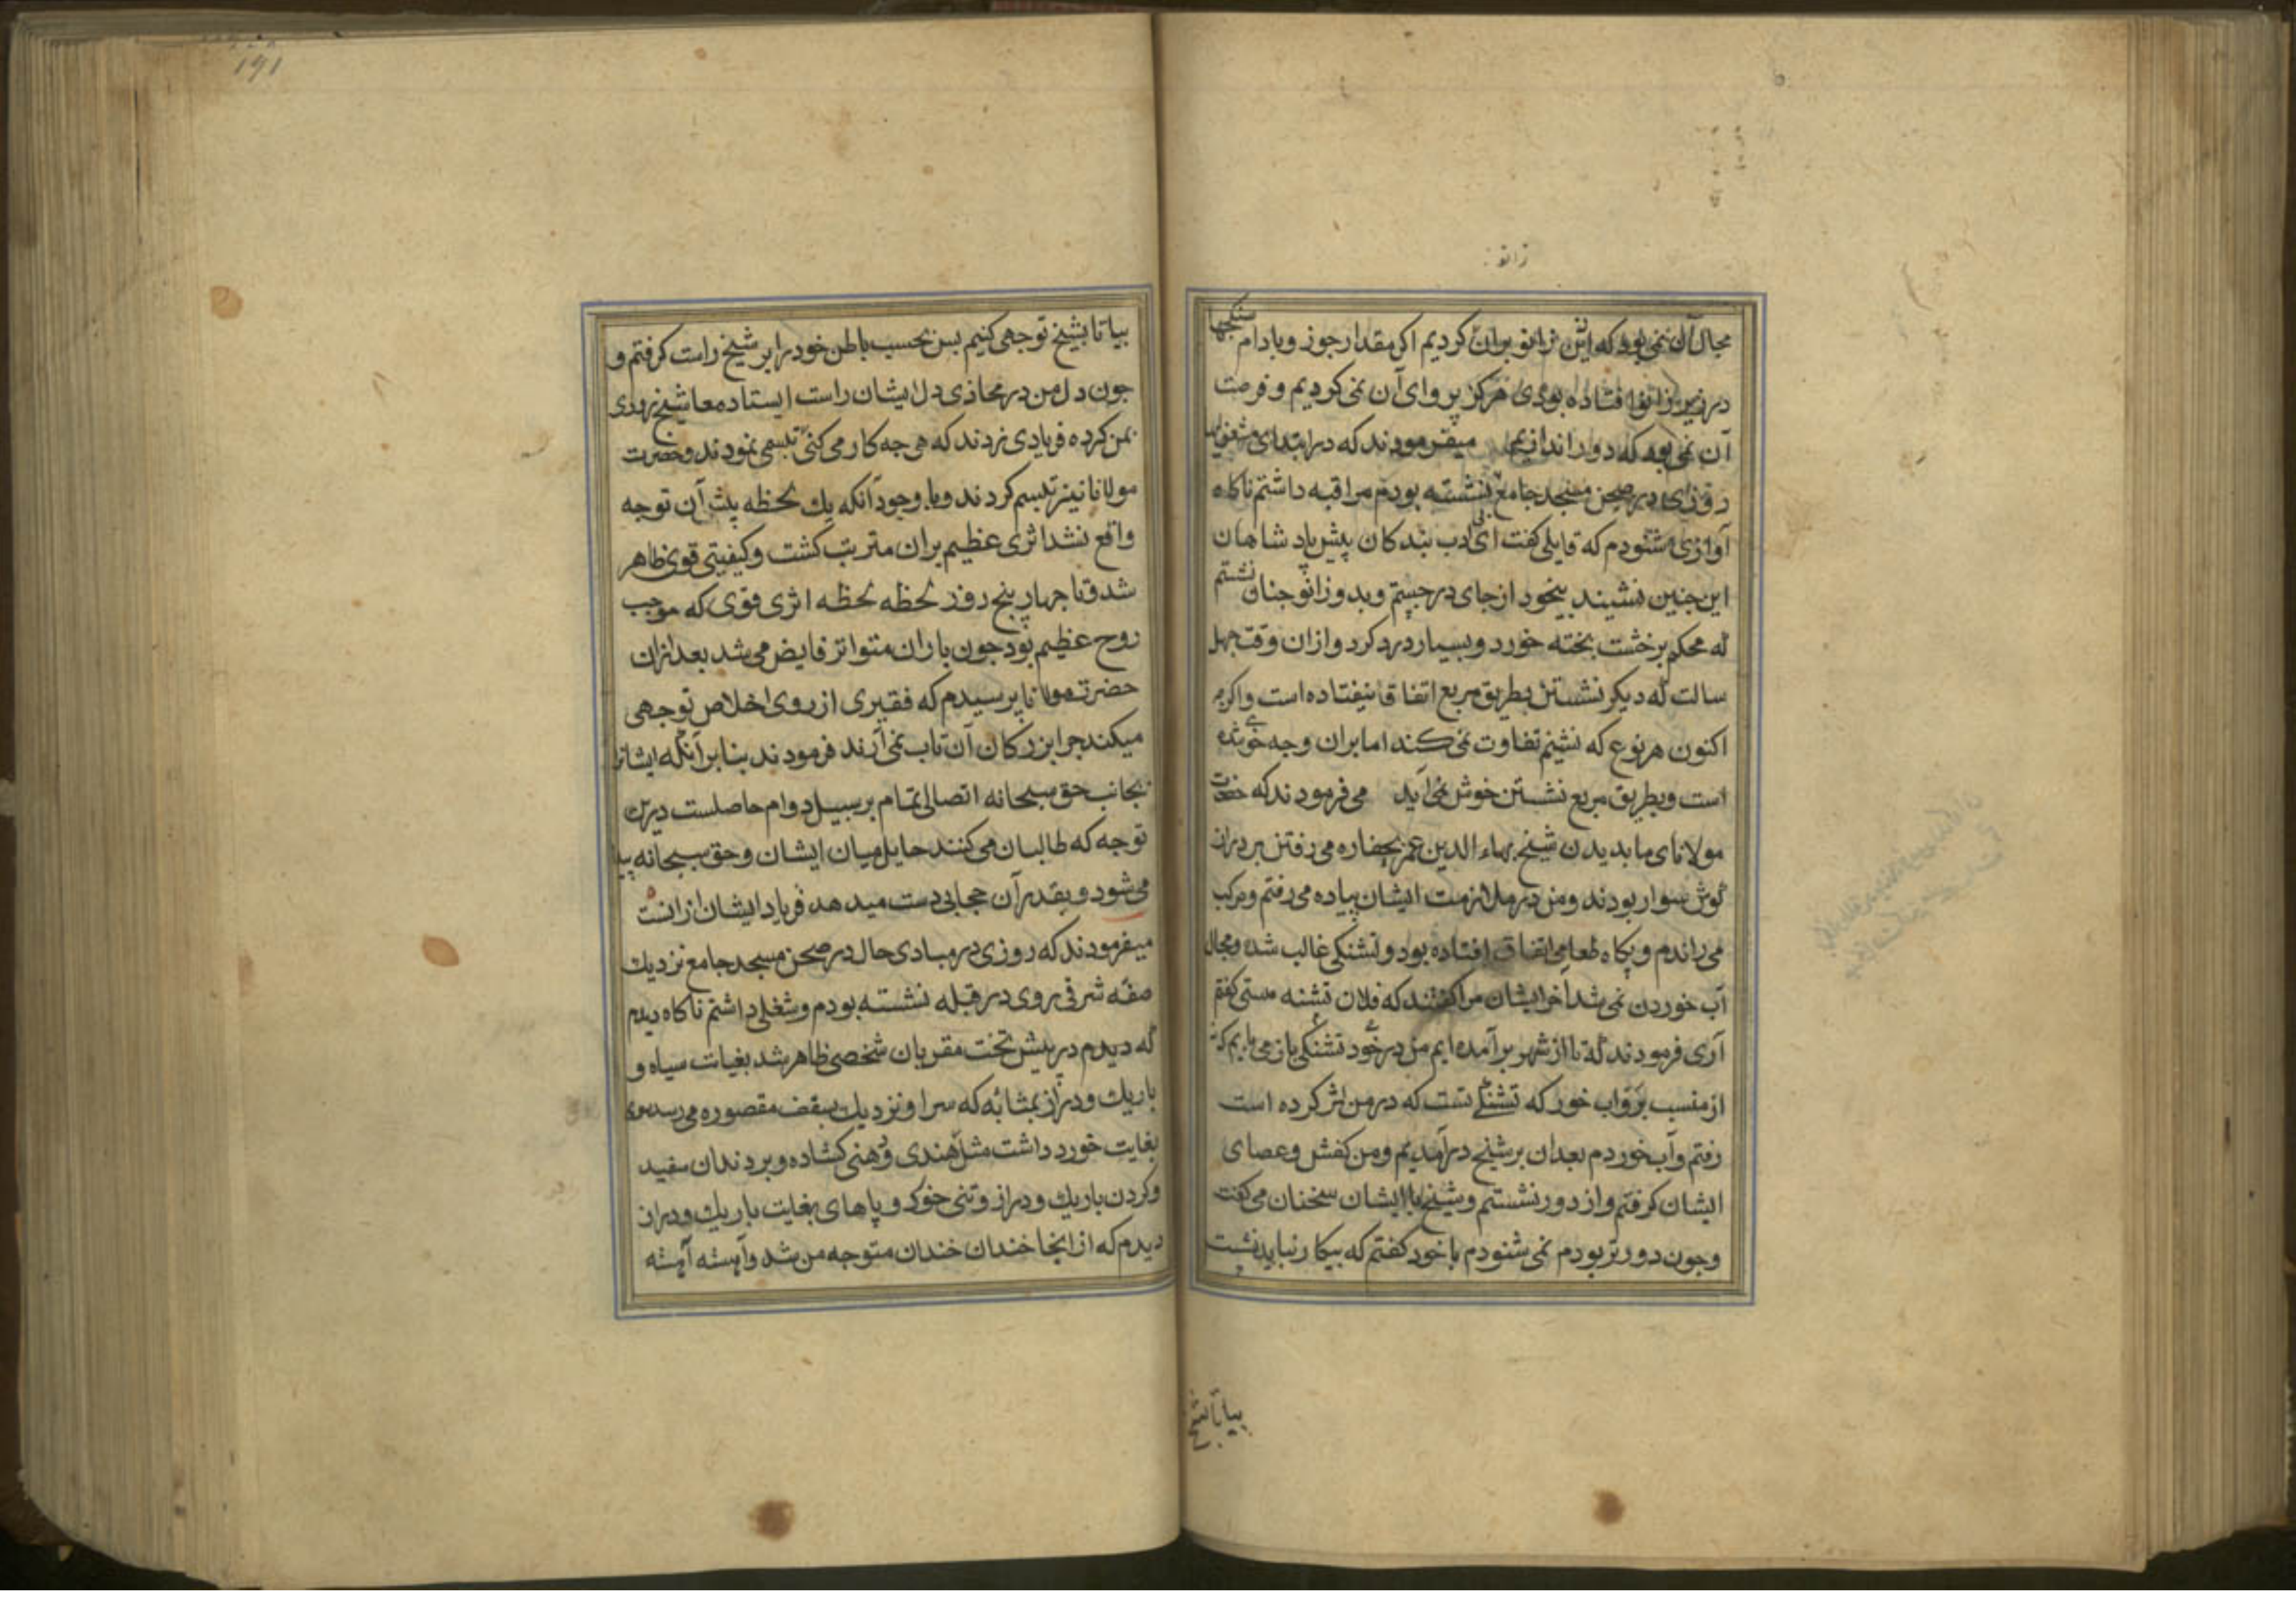 زانو
مجال آن نمی بود که این زانو بران کردیم اکر مقدار جوز و بادام سنکها
در زیر زانو افتاده بودی هرکز پروای آن نمی کردیم و فرصت
آن نمی بود که دور اندازیم میفرمودند که در ابتدای مشغولی
روزی در صحن مسجد جامع نشسته بودم مراقبه داشتم ناکاه
آوازی شنودم که قایلی کفت ای بی ادب بندکان پیش پادشاهان
این جنین نشینند بیخود از جای درجستم و بدو زانو جنان نشستم
که محکم برخشت بخته خورد و بسیار درد کرد و ازان وقت جهل
سالت که دیکر نشستن بطریق مربع اتفاق نیفتاده است و اکرجه
اکنون هر نوع که نشینم تفاوت نمی کند اما بران وجه خوی شده
است و بطریق مربع نشستن خوش نمی آید می فرمودند که حضرت
مولانای ما بدیدن شیخ بهاء الدین عمر بجغاره می رفتن بر دراز
کوش سوار بودند و من در ملازمت ایشان پیاده می رفتم و مرکب
می راندم و پکاه طعامی اتفاق افتاده بود و تشنکی غالب شده و مجال
آب خوردن نمی شد آخر ایشان مرا کفتند که فلان تشنه هستی کفتم
آری فرمودند که تا از شهر برآمده ایم من در خود تشنکی باز می یابم که نه
از منست برو آب خور که تشنکی تست که در من اثر کرده است
رفتم و آب خوردم بعدان بر شیخ درآمدیم و من کفش و عصای
ایشان کرفتم و از دور نشستم و شیخ با ایشان سخنان می کفت
و جون دورتر بودم نمی شنودم با خود کفتم که بیکار نباید نشست
بیا تا بشیخ
۱۹۱
بیا تا بشیخ توجهی کنیم بس بحسب باطن خود را بر شیخ راست کرفتم و
جون دل من در محاذی دل ایشان راست ایستاد معا شیخ روی
بمن کرده فریادی زدند که هی جه کار می کنی تبسمی نمودند و حضرت
مولانا نیز تبسم کردند و با وجود آنکه یك لحظه پیش آن توجه
واقع نشد اثری عظیم بران مترتب کشت و کیفیتی قوی ظاهر
شد و تا جهار پنج روز لحظه لحظه اثری قوی که موجب
روح عظیم بود جون باران متواتر فایض می شد بعد ازان
حضرت مولانا پرسیدم که فقیری از روی اخلاص توجهی
میکند جرا بزرکان آن تاب نمی آرند فرمودند بنابر آنکه ایشانرا
بجانب حق سبحانه اتصالی تمام بر سبیل دوام حاصلست درین
توجه که طالبان می کنند حایل میان ایشان و حق سبحانه پیدا
می شود و بقدر آن حجابی دست میدهد فریاد ایشان ازانست
میفرمودند که روزی در مبادی حال در صحن مسجد جامع نزدیك
صفه شرقی روی در قبله نشسته بودم و شغلی داشتم ناکاه دیدم
که دیدم در پیش تخت مقریان شخصی ظاهر شد بغیات سیاه و
باریك و دراز بمثابه که سر او نزدیك بسقف مقصوره می رسد سری
بغایت خورد داشت مثل هندی و دهنی کشاده و بر دندان سفید
و کردن باریك و دراز و تنی خورد و پاهای بغایت باریك و دراز
دیدم که از انجا خندان خندان متوجه من شد و آهسته آهسته